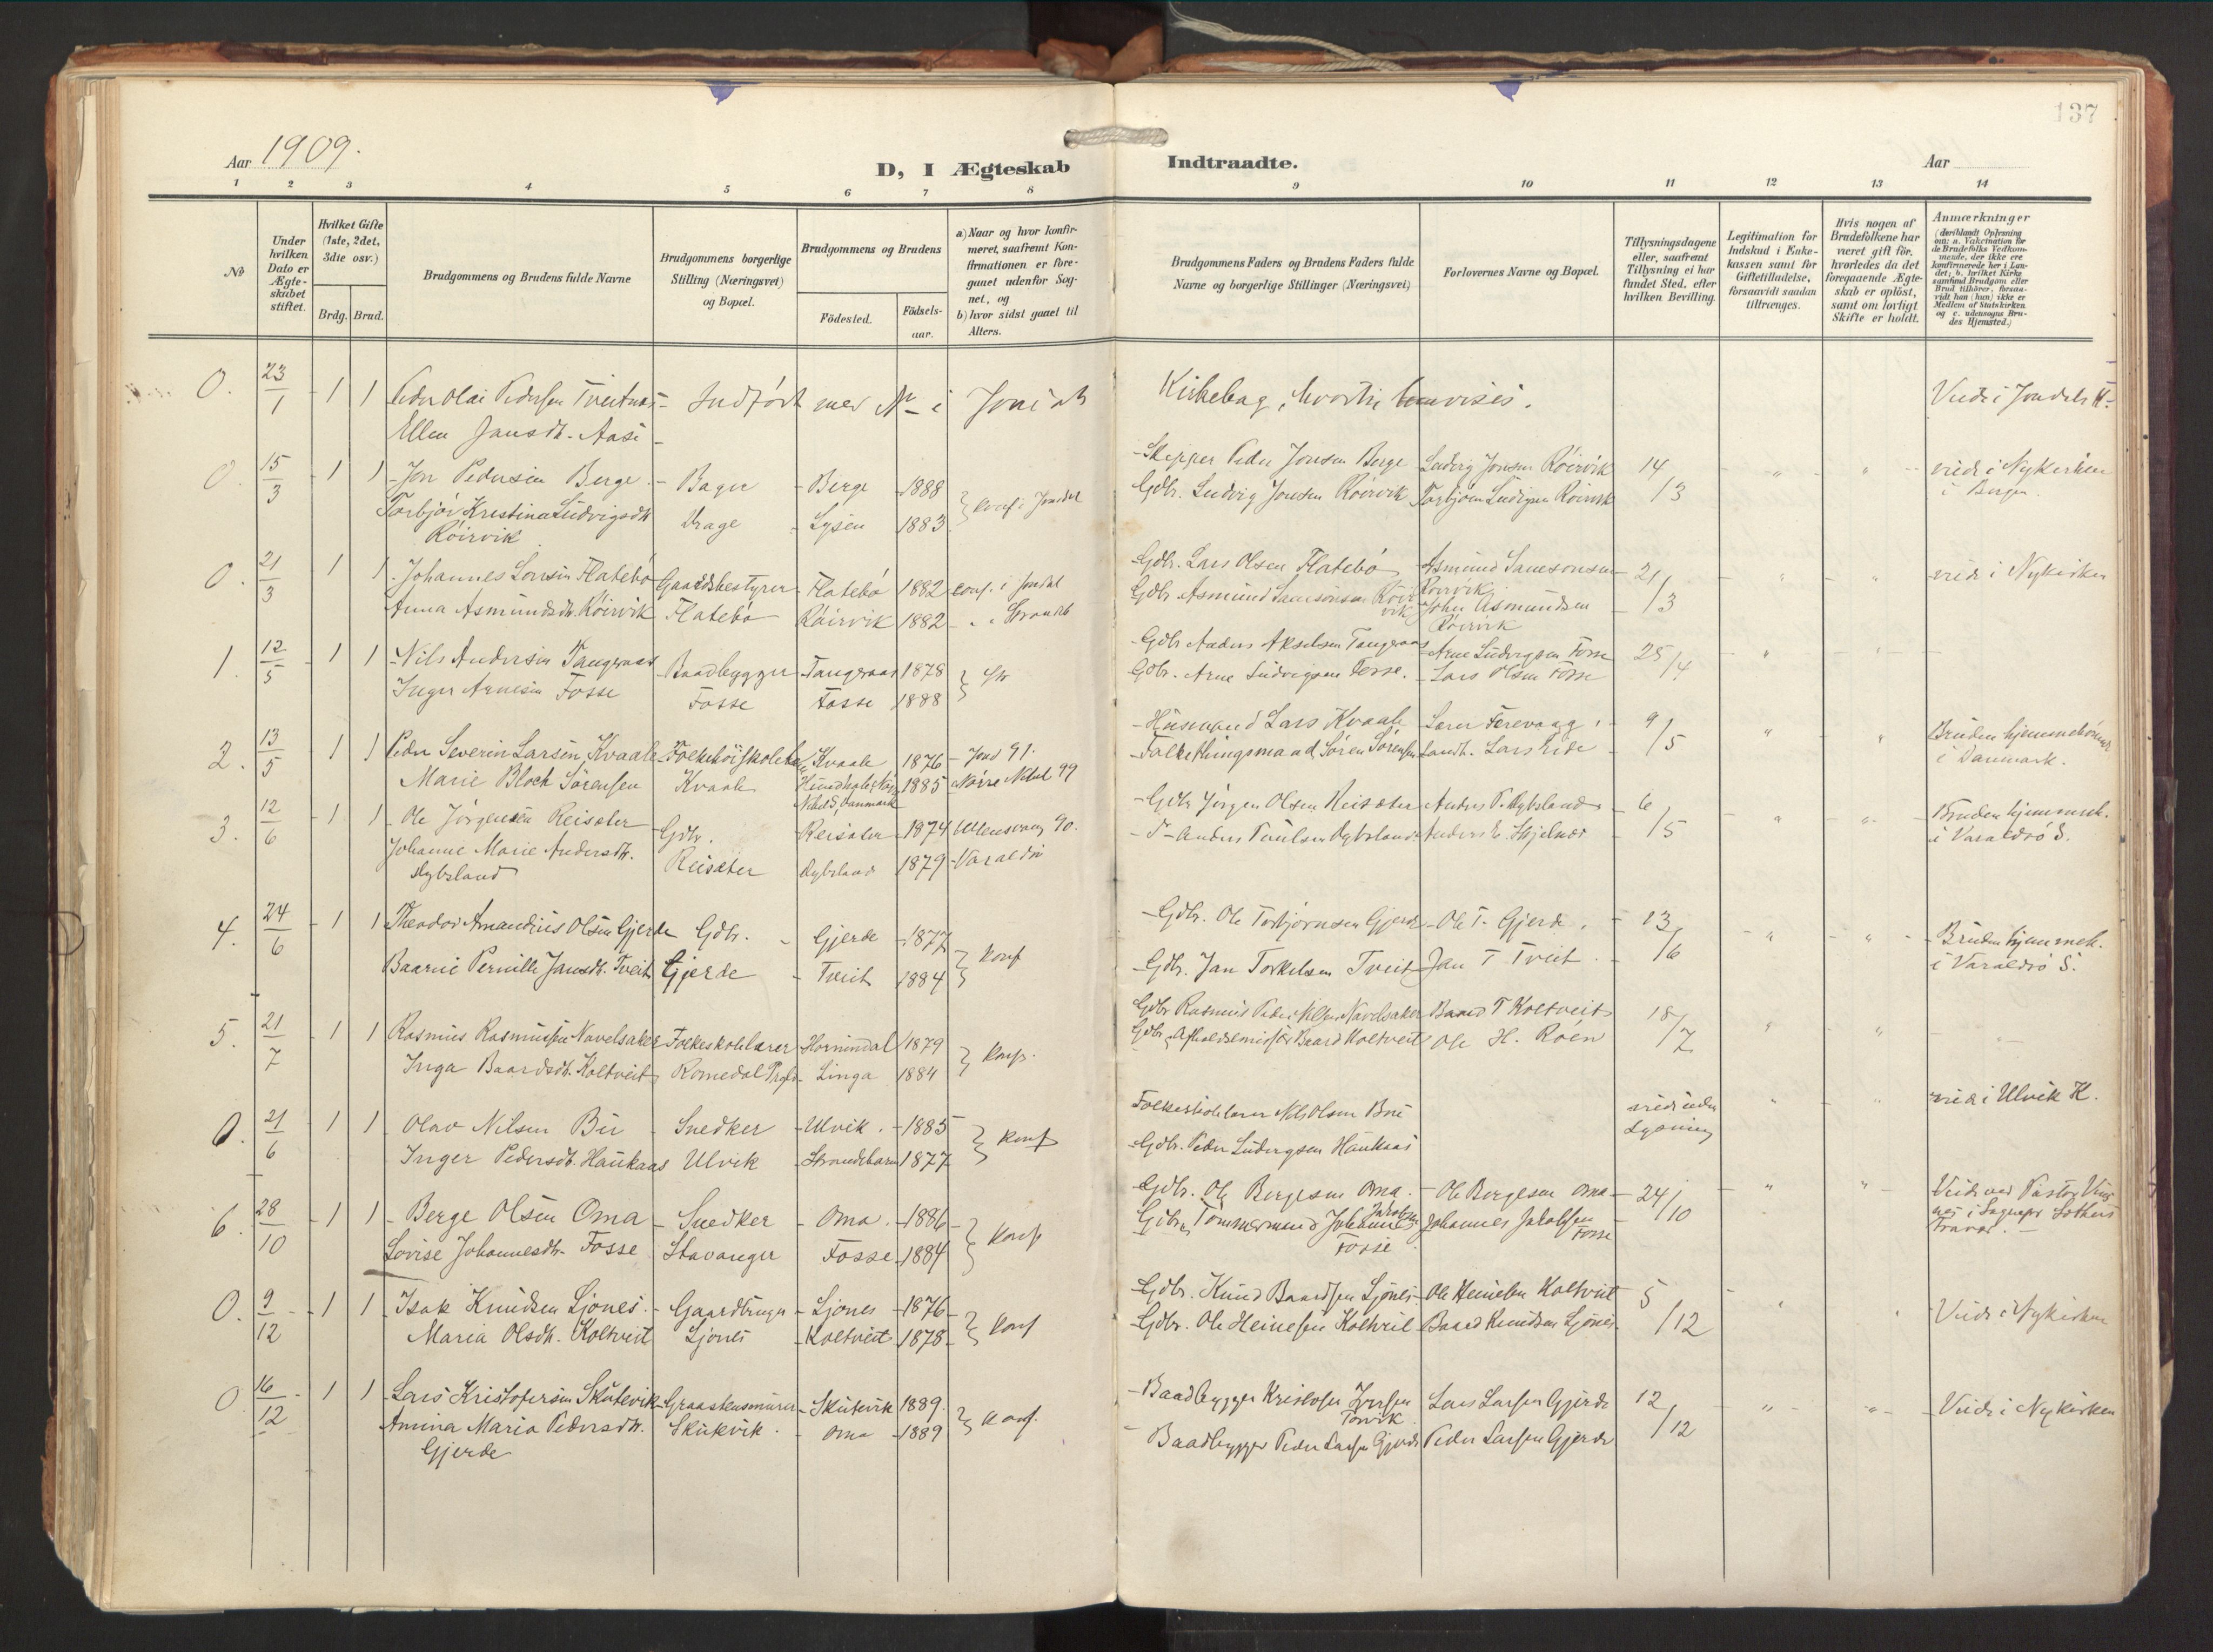 137
Aar 1909.
D, I Ægteskab Indtraadte.
Aar
1 2 3 4 5 6 7 8 9 10 11 12 13 14
No
Under hvilken Dato er Ægteskabet stiftet.
Hvilket Gifte (1ste, 2det, 3die osv.)
Brdg. Brud.
Brudgommens og Brudens fulde Navne
Brudgommens borgerlige Stilling (Næringsvei) og Bopæl.
Brudgommens og Brudens
Födested.
Födselsaar.
a) Naar og hvor konfirmeret, saafremt Konfirmationen er foregaaet udenfor Sognet, og
b) hvor sidst gaaet til Alters.
Brudgommens Faders og Brudens Faders fulde Navne og borgerlige Stillinger (Næringsvei)
Forlovernes Navne og Bopæl.
Tillysningsdagene eller, saafremt Tillysning ei har fundet Sted, efter hvilken Bevilling.
Legitimation for Indskud i Enkekassen samt for Giftetilladelse, forsaavidt saadan tiltrænges.
Hvis nogen af Brudefolkene har været gift för, hvorledes da det foregaaende Ægteskab er oplöst, samt om lovligt Skifte er holdt.
Anmærkninger
(deriblandt Oplysning om: a. Vakcination for de Brudefolks Vedkommende, der ikke ere konfirmerede her i Landet; b. hvilket Kirkesamfund Brudgom eller Brud tilhörer, forsaavidt han (hun) ikke er Medlem af Statskirken og c. udensogns Brudes Hjemsted.)
0. 23/1 1 1 Peder Olai Pedersen Indfört med No i Kirkebog, hvortil henvises. Viede i Jondals K.
Ellen Jansdt.
0. 15/3 1 1 Jon Pedersen Berge Bager Berge 1888 Skipper Peder Jonsen Berge Ludvig Jonsen Röirvik 14/3 viede i Nykirken
Torbjör Kristina Ludvigsdt. Vrage Lysen 1883 konf. i Jondal Gdbr. Ludvig Jonsen Röirvik Torbjörn Ludvigsen Röirvik i Bergen.
Röirvik
0. 21/3 1 1 Johannes Larsen Flatebö Gaardsbestyrer Flatebö 1882 conf. i Jondal Gdbr. Lars Olsen Flatebö Asmund Samsonsen 21/3 viede i Nykirken
Anna Asmundsdt. Röirvik Flatebö Röirvik 1882 Gdbr. Asmund Samsonsen Röirvik Röirvik
John Asmundsen
Röirvik
1. 12/5 1 1 Nils Andersen Tangeraas Baadbygger Tangeraas 1878 Gdbr Anders Akselsen Tangeraas Arne Ludvigsen Fosse 25/4
Inger Arnesen Fosse Fosse Fosse 1888 Gdbr. Arne Ludvigsen Fosse. Lars Olsen Fosse
2. 13/5 1 1 Peder Severin Larsen Kvaale Folkehöiskolelærer Kvaale 1876 Jond 91. Husmand Lars Kvaale Lærer Ferevaag 9/5 Bruden hjemmehörende
Marie Bloch Sörensen Kvaale 1885 Nörre 99 Folkethingsmand Sören Sörensen Landh. Lars Eide i Danmark.
3. 12/6 1 1 Ole Jörgensen Reisæter Gdbr. Reisæter 1874 Ullensvang 90. Gdbr Jörgen Olsen Reisæter Anders P. Dybsland 6/5 Bruden hjemmeh.
Johanne Marie Andersdt. Reisæter Dybsland 1879 Varaldsö Anders Paulsen Dybsland Anders E. Skjelnæs i Varaldsö S.
Dybsland
4. 24/6 1 1 Theodor Amandius Olsen Gjerde Gdbr. Gjerde 1877 konf Gdbr. Ole Torbjörnsen Gjerde Ole T. Gjerde. 13/6 Bruden hjemmeh.
Baarnie Pernille Jansdt. Tveit Gjerde Tveit 1884 Gdbr. Jan Torkelsen Tveit Jan T Tveit i Varaldsö S.
5. 21/7 1 1 Rasmus Rasmussen Navelsaker Folkeskolelærer Hornindal 1879 konf. Gdbr Rasmus Peder Navelsaker Baard T Koltveit 18/7
Inga Baardsdt. Koltveit Romedal Linga 1884 Gdbr Baard Koltveit Ole H. Röen
0. 21/6 1 1 Olav Nilsen Bu Snedker Ulvik. 1885 konf Folkeskolelærer Nils Olsen Bu viede uden Lysning viede i Ulvik K.
Inger Pedersdt. Haukaas Ulvik Strandebarm 1877 Gdbr. Peder Ludvigsen Haukaas
6. 28/10 1 1 Berge Olsen Oma Snedker Oma 1886 konf Gdbr. Ole Bergesen Oma. Ole Bergesen Oma 24/10 Viede ved Pastor
Lovise Johannesdt. Fosse Stavanger Fosse 1884 Gdbr. Tömmermand Johannes Jakobsen Fosse Johannes Jakobsen Fosse i Sognepr. Fravær.
0. 9/12 1 1 Isak Knudsen Ljones Gaardbruger Ljones 1876 konf Gdbr. Knud Baardsen Ljones Ole Heinesen Koltveit 5/12 Viede i Nykirken
Maria Olsdt. Koltveit Ljones Koltveit 1878 Gdbr. Ole Heinesen Koltveit Baard Knudsen Ljones
0. 16/12 1 1 Lars Kristofersen Skutevik Graastensmurer Skutevik 1889. konf. Baadbygger Kristofer Torvik Lars Larsen Gjerde 12/12 Viede i Nykirken
Amina Maria Pedersdt. Skutevik. Oma 1889 Baadbygger Peder Larsen Gjerde Peder Larsen Gjerde
Gjerde